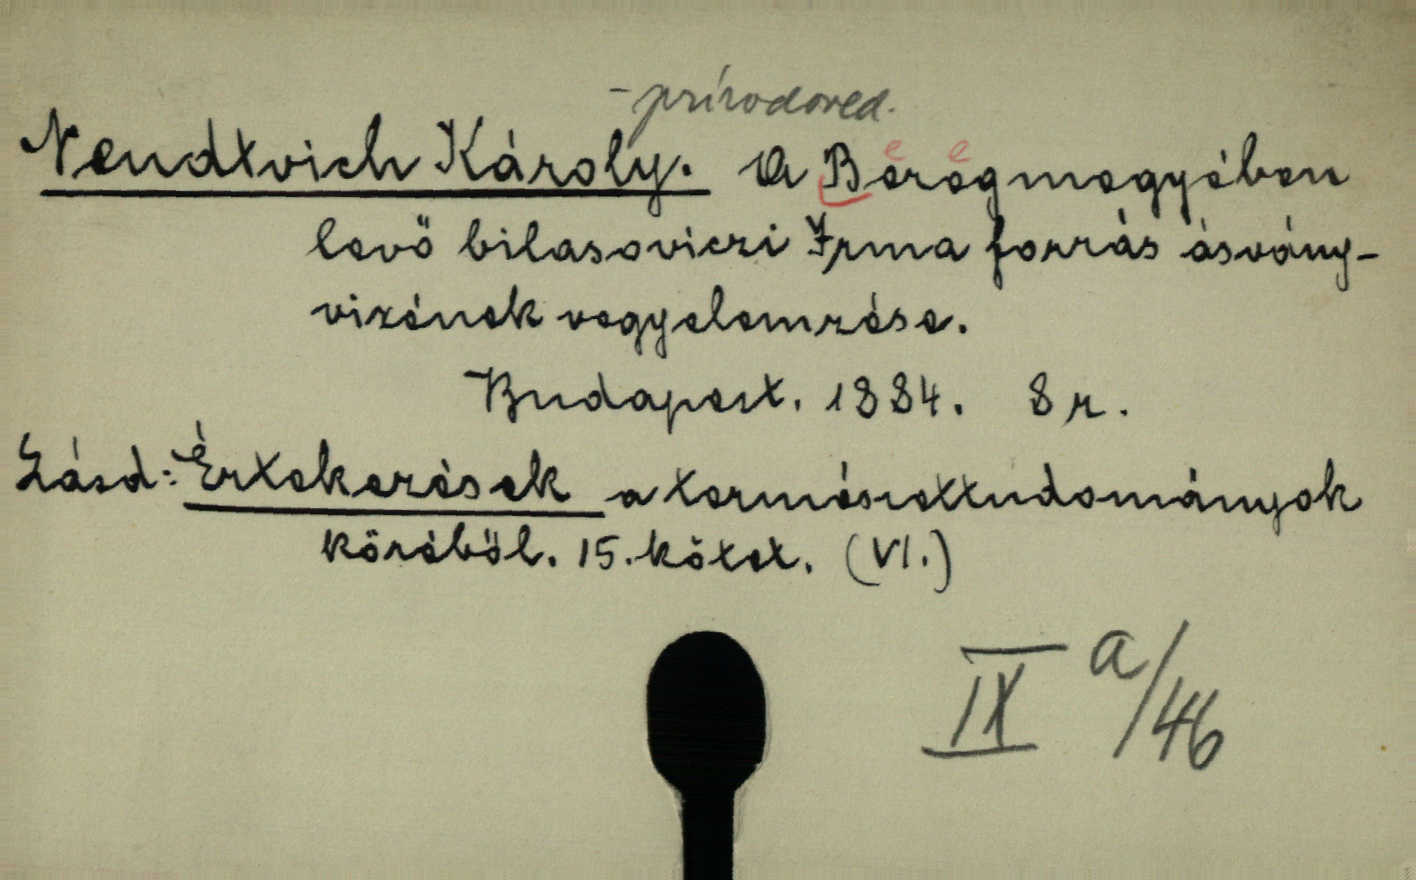 - prírodoved.
Nendtvich Károly. A Beregmegyében
levő bilasoviczi Irma forrás ásvány-
vizének vegyelemzése.
Budapest. 1884. 8 r.
Lásd: Értekezések a természettudományok
köréből. 15. kötet. (VI.)
IX a/46